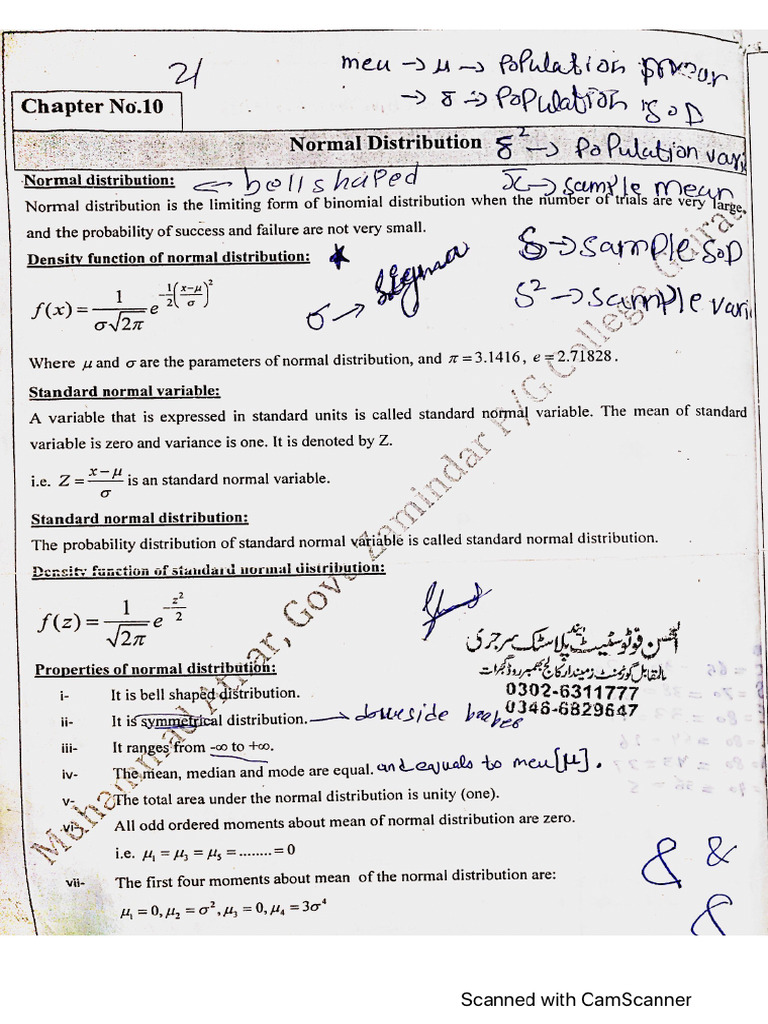 21
meu → μ → Population mean
Chapter No.10
→ δ → Population S.D
Normal Distribution
δ² → Population vari
Normal distribution:
← bell shaped
x̄ → sample mean
Normal distribution is the limiting form of binomial distribution when the number of trials are very large,
and the probability of success and failure are not very small.
Density function of normal distribution:
S → sample S.D
σ → sigma
S² → sample vari
f(x) = 1/(σ√2π) e^(-1/2((x-μ)/σ)²)
Where μ and σ are the parameters of normal distribution, and π = 3.1416 , e = 2.71828 .
Standard normal variable:
A variable that is expressed in standard units is called standard normal variable. The mean of standard
variable is zero and variance is one. It is denoted by Z.
i.e. Z = (x-μ)/σ is an standard normal variable.
Standard normal distribution:
The probability distribution of standard normal variable is called standard normal distribution.
Density function of standard normal distribution:
f(z) = 1/√2π e^(-z²/2)
احسن فوٹوسٹیٹ اینڈ پلاسٹک سرجری
بالمقابل گورنمنٹ زمیندار کالج بھمبر روڈ گجرات
0302-6311777
0346-6829647
Properties of normal distribution:
i- It is bell shaped distribution.
ii- It is symmetrical distribution. → downside
iii- It ranges from -∞ to +∞.
iv- The mean, median and mode are equal. and equals to meu [μ].
v- The total area under the normal distribution is unity (one).
vi- All odd ordered moments about mean of normal distribution are zero.
i.e. μ₁ = μ₃ = μ₅ = ........ = 0
vii- The first four moments about mean of the normal distribution are:
μ₁ = 0, μ₂ = σ², μ₃ = 0, μ₄ = 3σ⁴
& &
&
Muhammad Athar, Govt. Zamindar P/G College, Gujrat
Scanned with CamScanner